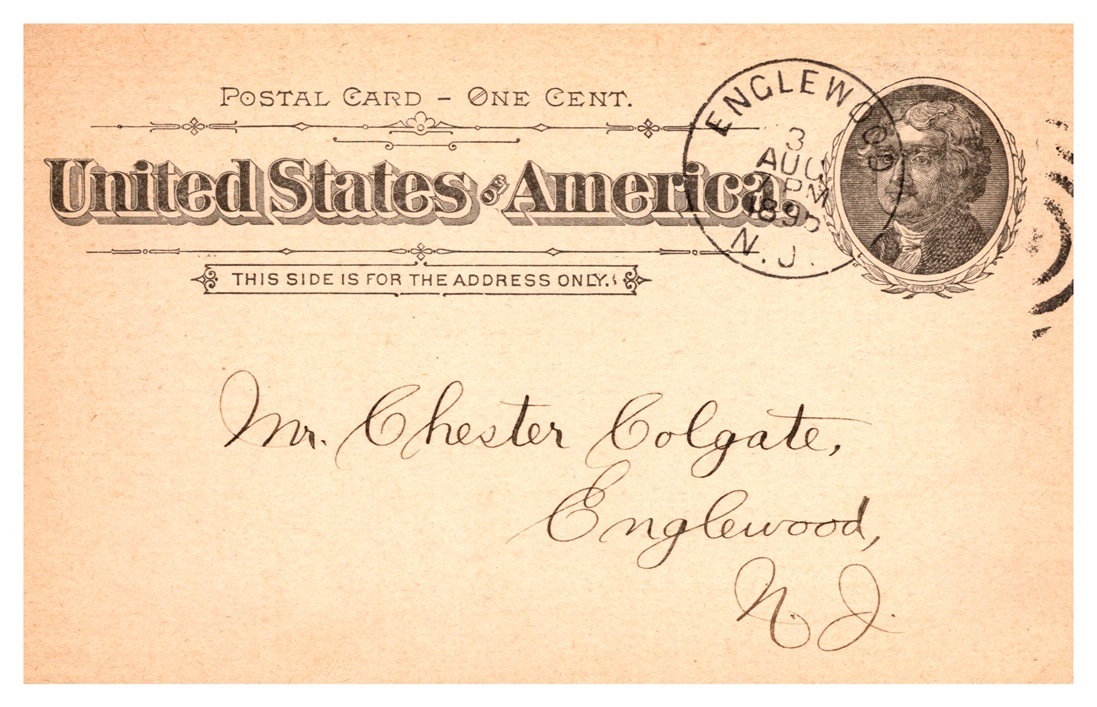 POSTAL CARD – ONE CENT.
United States OF America
THIS SIDE IS FOR THE ADDRESS ONLY.
ENGLEWOOD
3
AUG
PM
N. J.
Mr. Chester Colgate,
Englewood,
N. J.